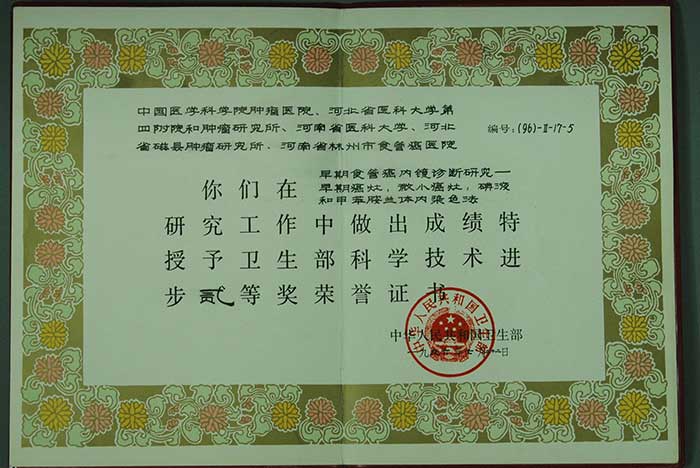 中国医学科学院肿瘤医院、河北省医科大学第
四附院和肿瘤研究所、河南省医科大学、河北
省磁县肿瘤研究所、河南省林州市食管癌医院
编号:(96)-Ⅱ-17-5
你们在
早期食管癌内镜诊断研究—
早期癌灶，微小癌灶，碘液
和甲苯胺兰体内染色法
研究工作中做出成绩特
授予卫生部科学技术进
步贰等奖荣誉证书
中华人民共和国卫生部
中华人民共和国卫生部